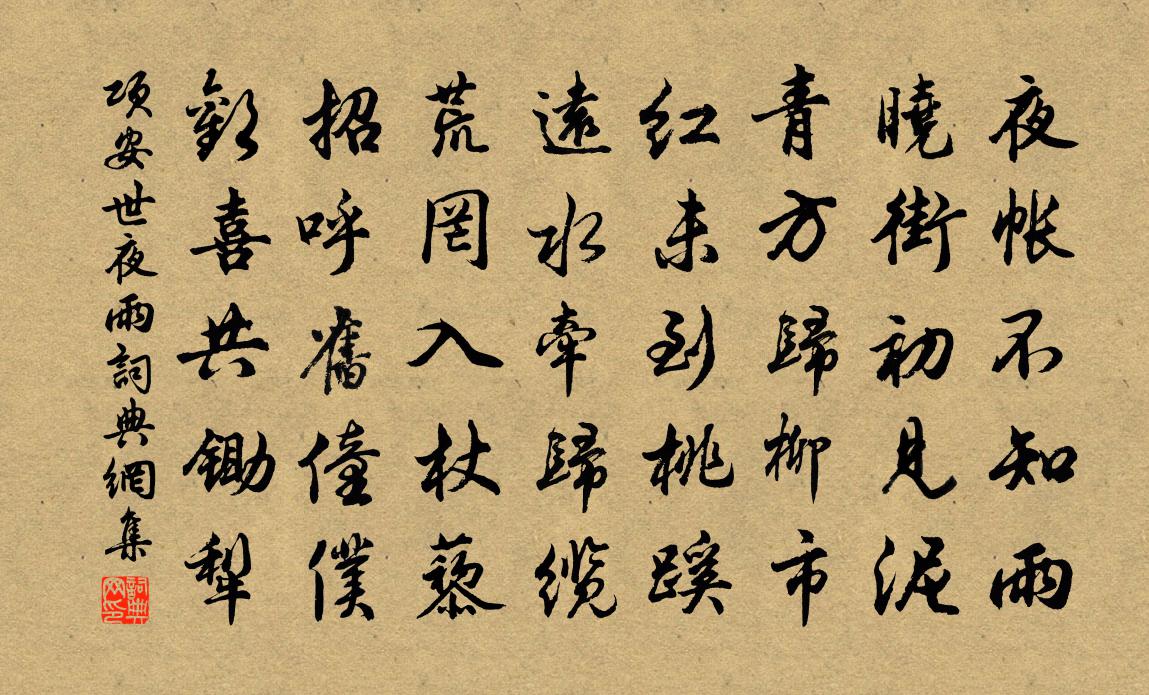 夜帐不知雨
曉街初見泥
青方歸柳市
紅未到桃蹊
遠水牽歸纜
荒罔入杖藜
招呼舊僮僕
歡喜共鋤犁
項安世夜雨詞典網集
詞典網印